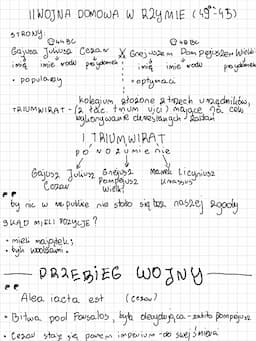 II WOJNA DOMOWA W RZYMIE (49-45)
STRONY:
44 BC
48 BC
Gajusz Juliusz Cezar X Gnejuszem Pompejuszem Wielki
imię imię rodu przydomek imię rodu przydomek
• popularzy • optymaci
kolegium złożone z trzech urzędników,
TRIUMWIRAT - (z łac. trium viri) mające na celu
wykonywanie określonych zadań
I TRIUMWIRAT
POROZUMIENIE
Gajusz Juliusz Gnejusz Marek Licyniusz
Cezar Pompejusz Krassus
Wielki
by nic w republice nie stało się bez naszej zgody
SKĄD MIELI POZYCJE?
• mieli majątek;
• byli wodzami.
PRZEBIEG WOJNY
Alea iacta est (Cezar)
• Bitwa pod Farsalos, była decydująca - zabito pompejusz
• Cezar staje się panem imperium - do swej śmierci